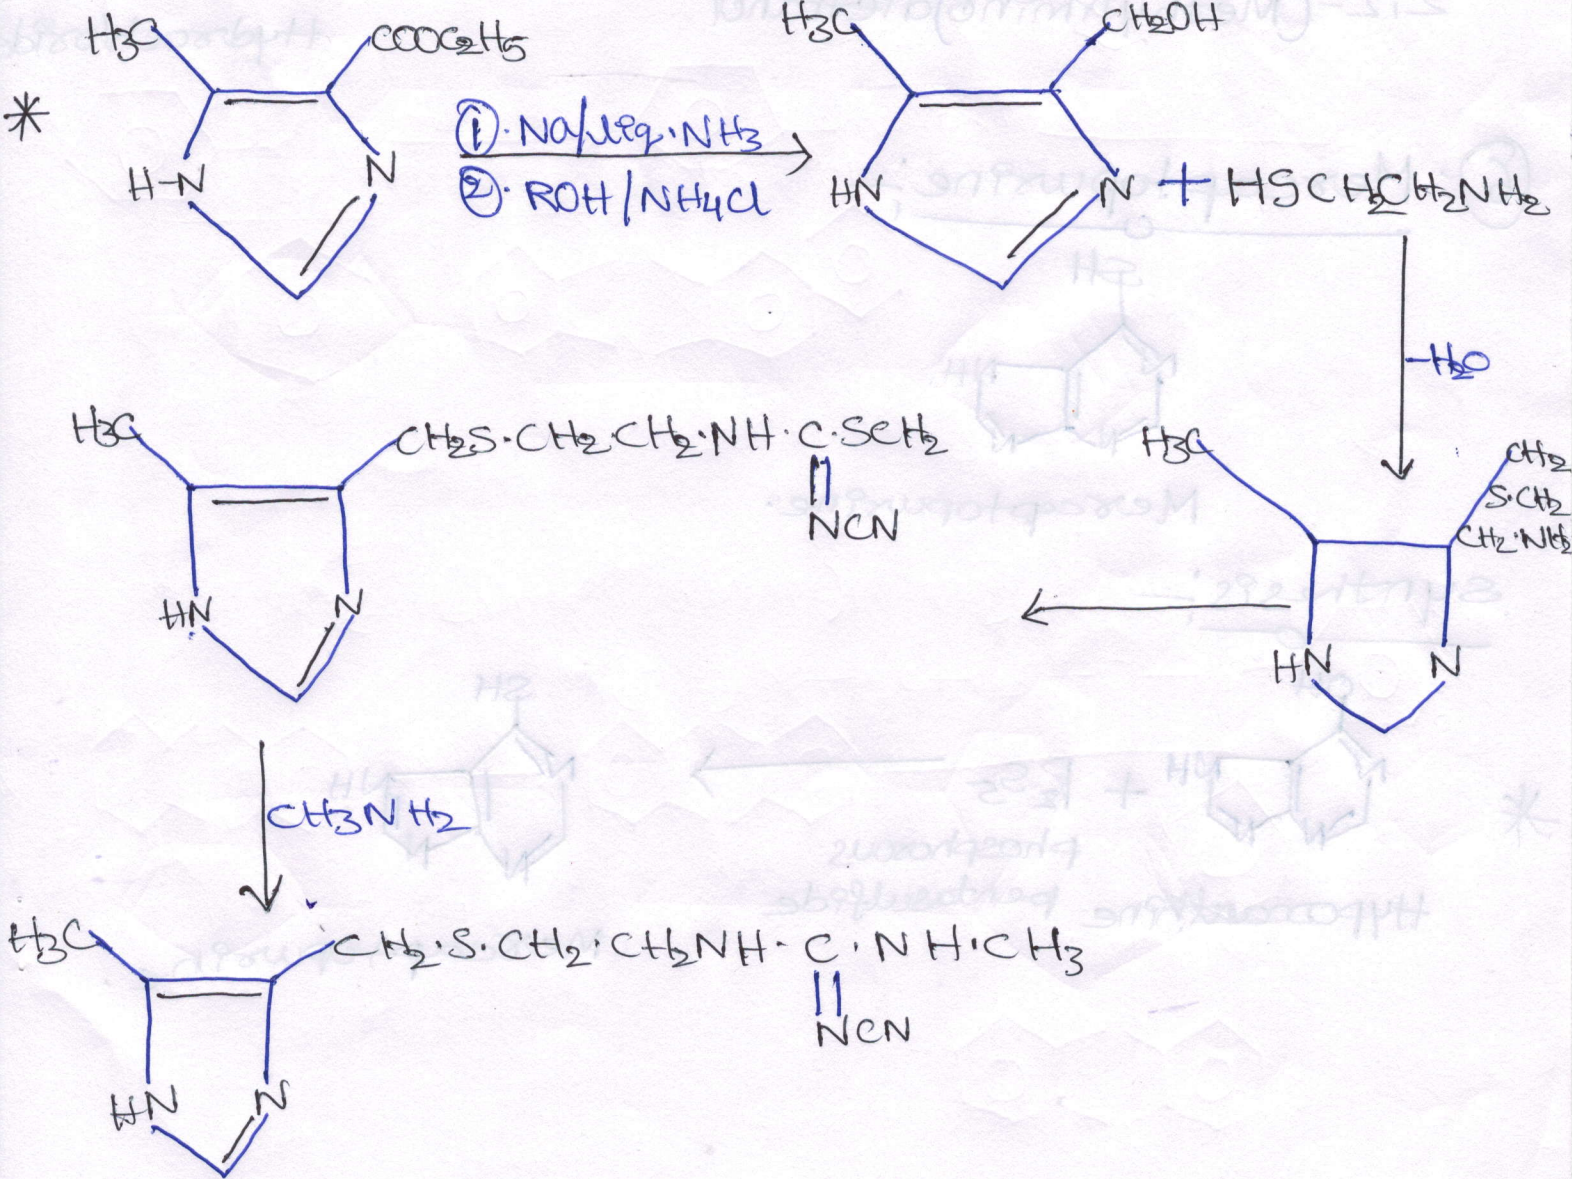 H3C COOC2H5
*
H-N N
① · Na/liq·NH3
② · ROH/NH4Cl
H3C CH2OH
HN N + HSCH2CH2NH2
-H2O
H3C CH2
S·CH2
CH2·NH2
HN N
H3C CH2S·CH2·CH2·NH·C·SCH2
NCN
HN N
CH3NH2
H3C CH2·S·CH2·CH2NH·C·NH·CH3
NCN
HN N